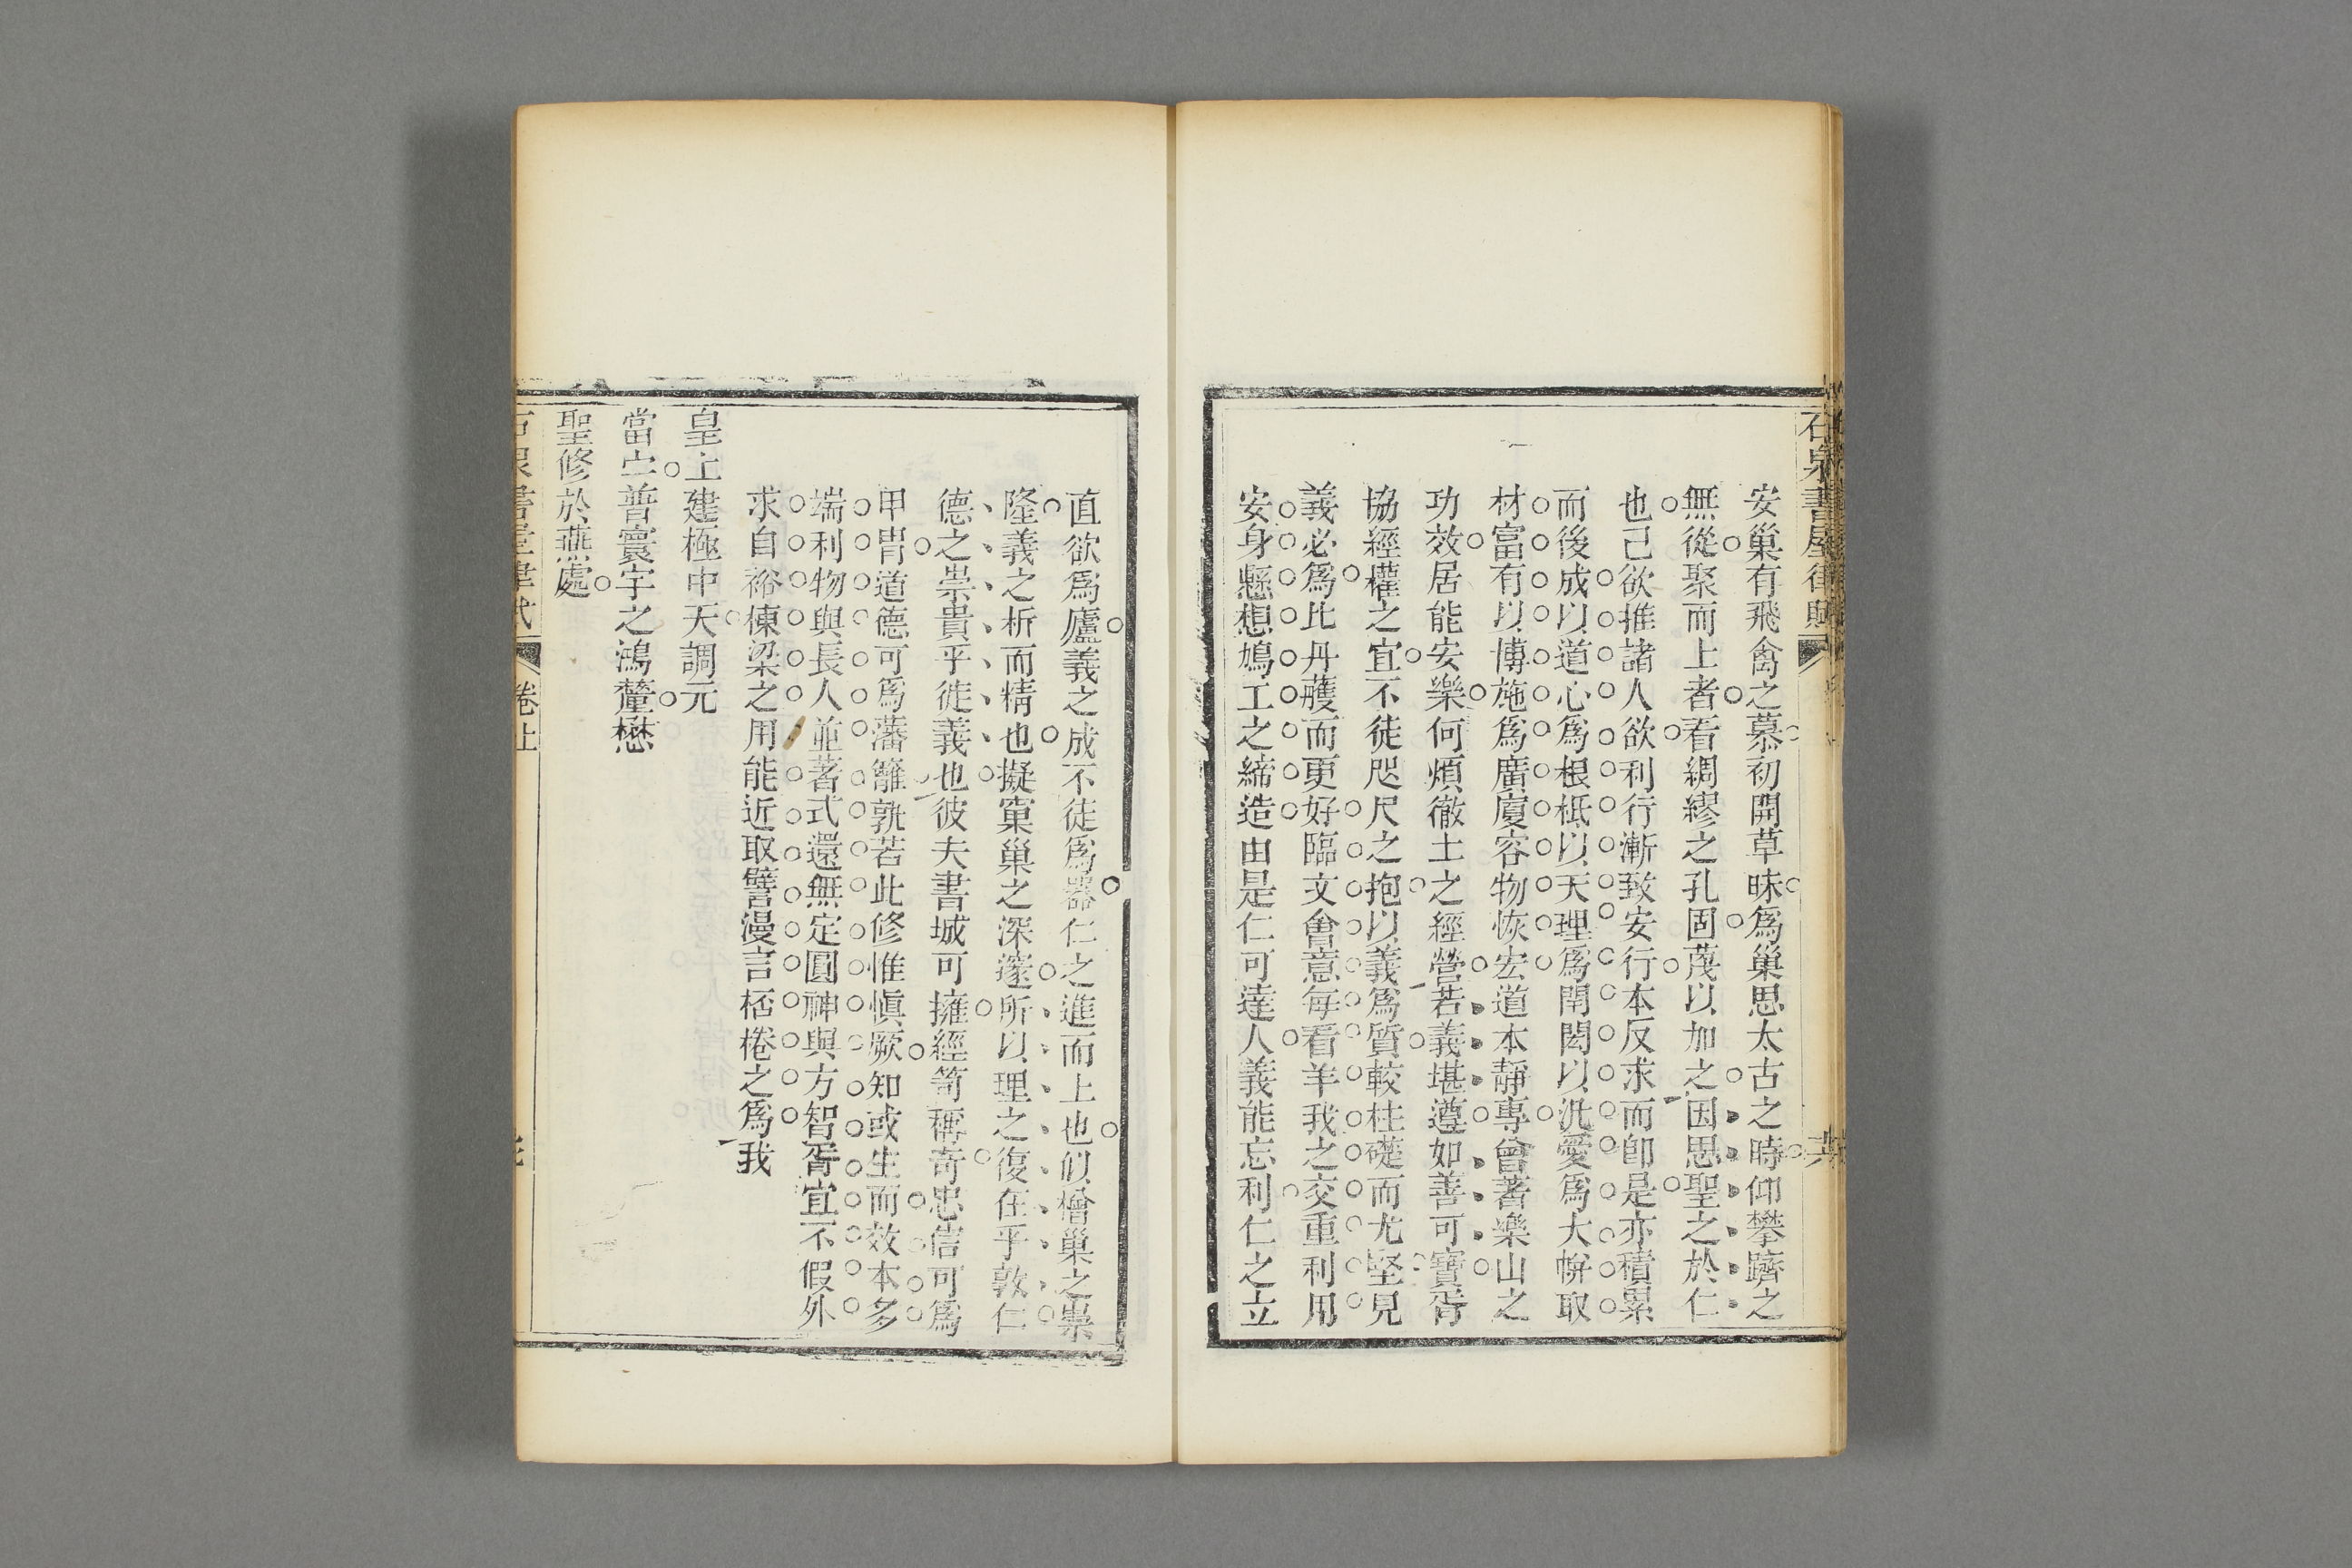 石泉書屋律賦
安巢有飛禽之慕初開草昧爲巢思太古之時仰攀躋之
無從聚而上者看綢繆之孔固茂以加之因思聖之於仁
也己欲推諸人欲利行漸致安行本反求而卽是亦積累
而後成以道心爲根柢以天理爲閈閎以汎愛爲大帡取
材富有以博施爲廣廈容物恢宏道本靜專曾著樂山之
功效居能安樂何煩徹土之經營若義堪遵如善可寶胥
協經權之宜不徒咫尺之抱以義爲質較柱礎而尤堅見
義必爲比丹雘而更好臨文會意每看羊我之交重利用
安身懸想鳩工之締造由是仁可達人義能忘利仁之立
直欲爲廬義之成不徒爲器仁之進而上也似橧巢之崇
隆義之析而精也擬窠巢之深邃所以理之復在乎敦仁
德之崇貴乎徙義也彼夫書城可擁經笥稱奇忠信可爲
甲冑道德可爲藩籬孰若此修惟愼厥知或生而效本多
端利物與長人並著式還無定圓神與方智胥宜不假外
求自裕棟梁之用能近取譬漫言桮棬之爲我
皇上建極中天調元
當宁普寰宇之鴻釐懋
聖修於燕處
卷上